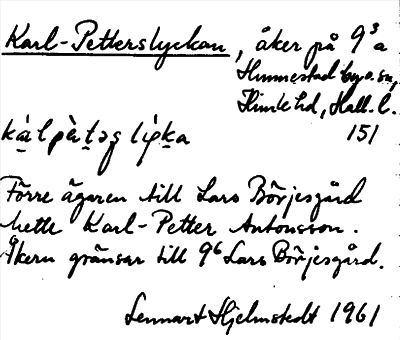 Karl-Petterslyckan, åker på 9³a
Himmestad by o. sn,
Himle hd, Hall. l.
151
Förre ägaren till Lars Börjesgård
hette Karl-Petter Antonsson.
Åkern gränsar till 9⁶ Lars Börjesgård.
Lennart Hjelmstedt 1961